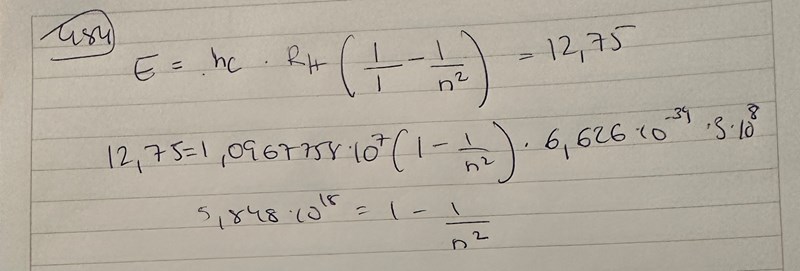 E = hc · R_H (1/1 − 1/n²) = 12,75
12,75 = 1,0967758·10⁷ (1 − 1/n²) · 6,626·10⁻³⁴ · 3·10⁸
5,848·10¹⁸ = 1 − 1/n²